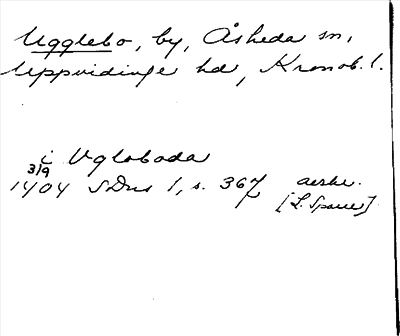 Ugglebo, by, Åsheda sn,
Uppvidinge hd, Kronob. l.
i Ugloboda
3/9
1404 SDns 1, s. 367 avskr.
[L. Sparre]